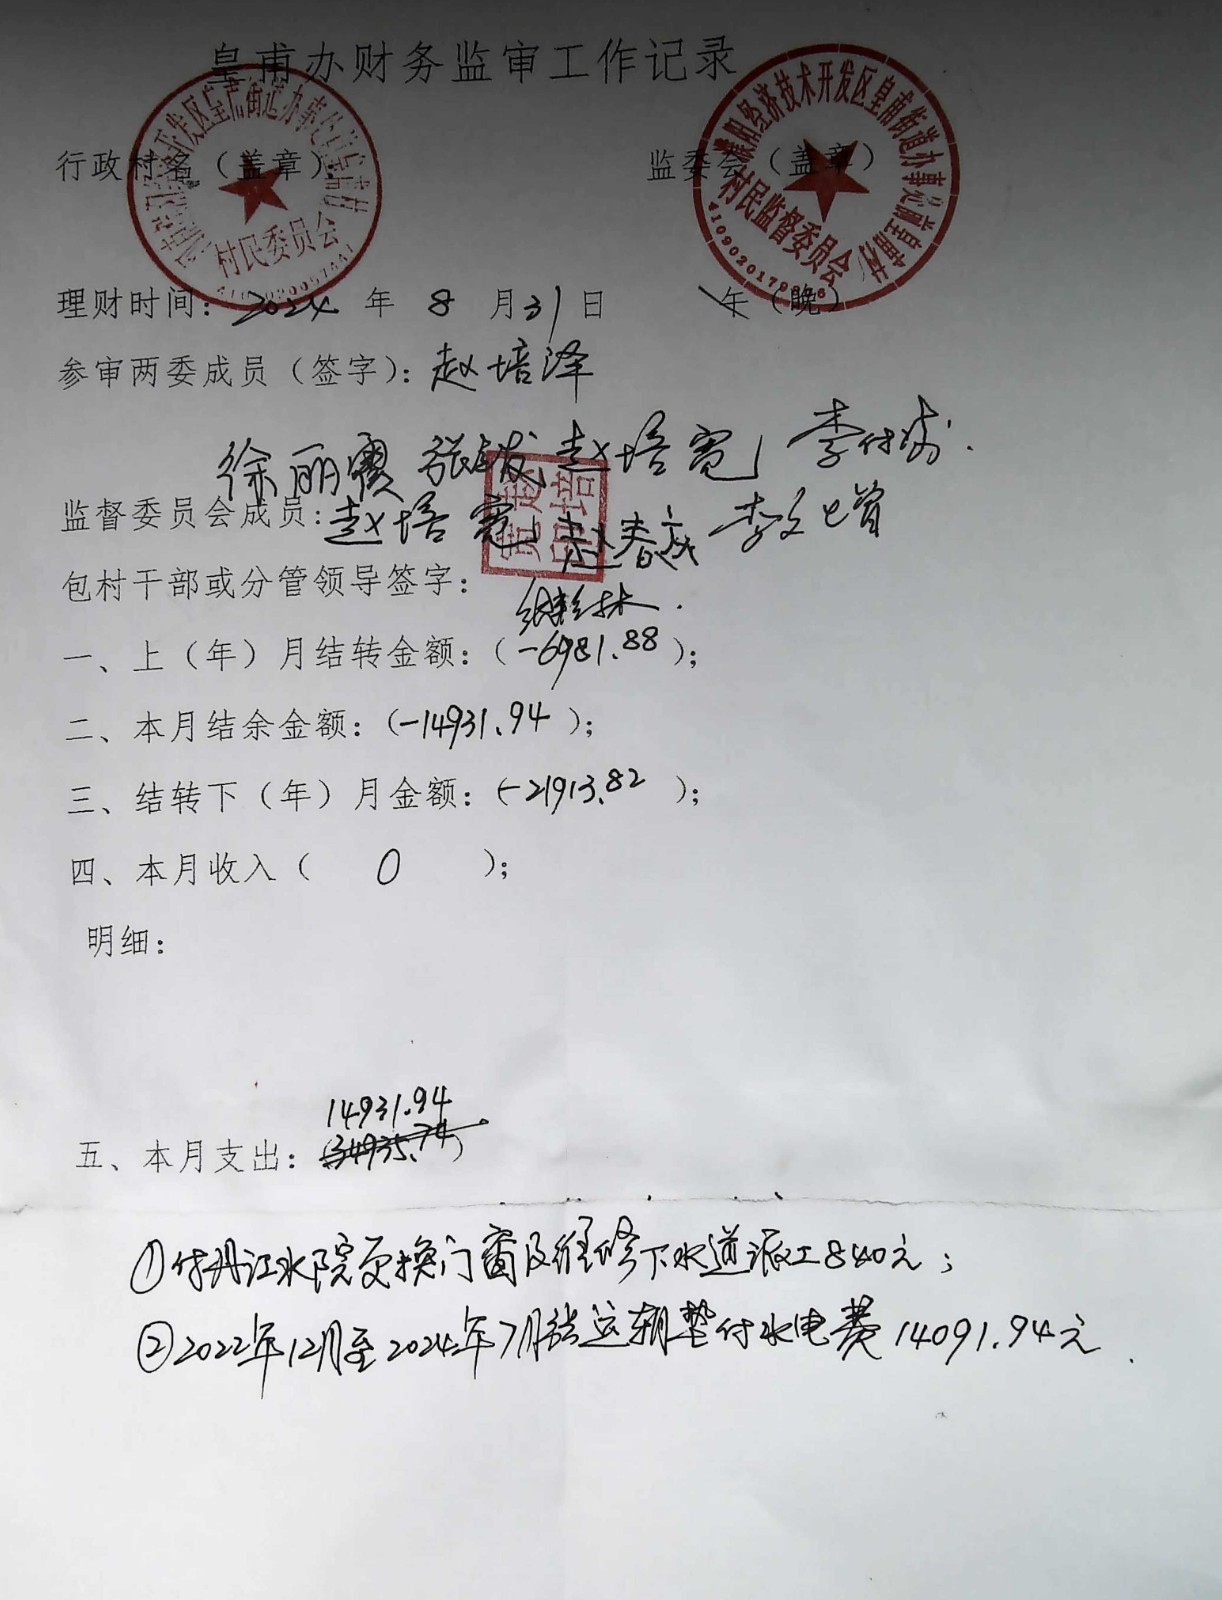 皇甫办财务监审工作记录
行政村名（盖章）
监委会（盖章）
村民委员会
濮阳经济技术开发区皇甫街道办事处前皇甫村
村民监督委员会
理财时间：2024 年 8 月31日 午（晚）
参审两委成员（签字）：赵培泽
徐丽霞 赵培宽 李付
监督委员会成员：赵培宽 赵春成 李文增
包村干部或分管领导签字：
一、上（年）月结转金额：（-6981.88）；
二、本月结余金额：（-14931.94）；
三、结转下（年）月金额：（-21913.82）；
四、本月收入（ 0 ）；
明细：
14931.94
五、本月支出：（34935.74）
①付丹江水院更换门窗及维修下水道派工840元；
②2022年12月至2024年7月张运朝垫付水电费14091.94元.